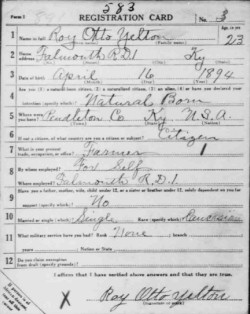 583
Form 1 REGISTRATION CARD No. 3
1 Name in full Roy Otto Yelton Age, in yrs. 23
(Given name) (Family name)
2 Home address Falmouth R.D.1 Ky
(No.) (Street) (City) (State)
3 Date of birth April 16 1894
(Month) (Day) (Year)
4 Are you (1) a natural-born citizen, (2) a naturalized citizen, (3) an alien, (4) or have you declared your
intention (specify which)? Natural Born
5 Where were you born? Pendleton Co Ky U.S.A.
(Town) (State) (Nation)
6 If not a citizen, of what country are you a citizen or subject? Citizen
7 What is your present trade, occupation, or office? Farmer 1
8 By whom employed? For Self
Where employed? Falmouth R.D.1.
9 Have you a father, mother, wife, child under 12, or a sister or brother under 12, solely dependent on you for
support (specify which)? No
10 Married or single (which)? Single Race (specify which)? Caucasian
11 What military service have you had? Rank None ; branch
years ; Nation or State
12 Do you claim exemption
from draft (specify grounds)?
I affirm that I have verified above answers and that they are true.
X Roy Otto Yelton
(Signature or mark)